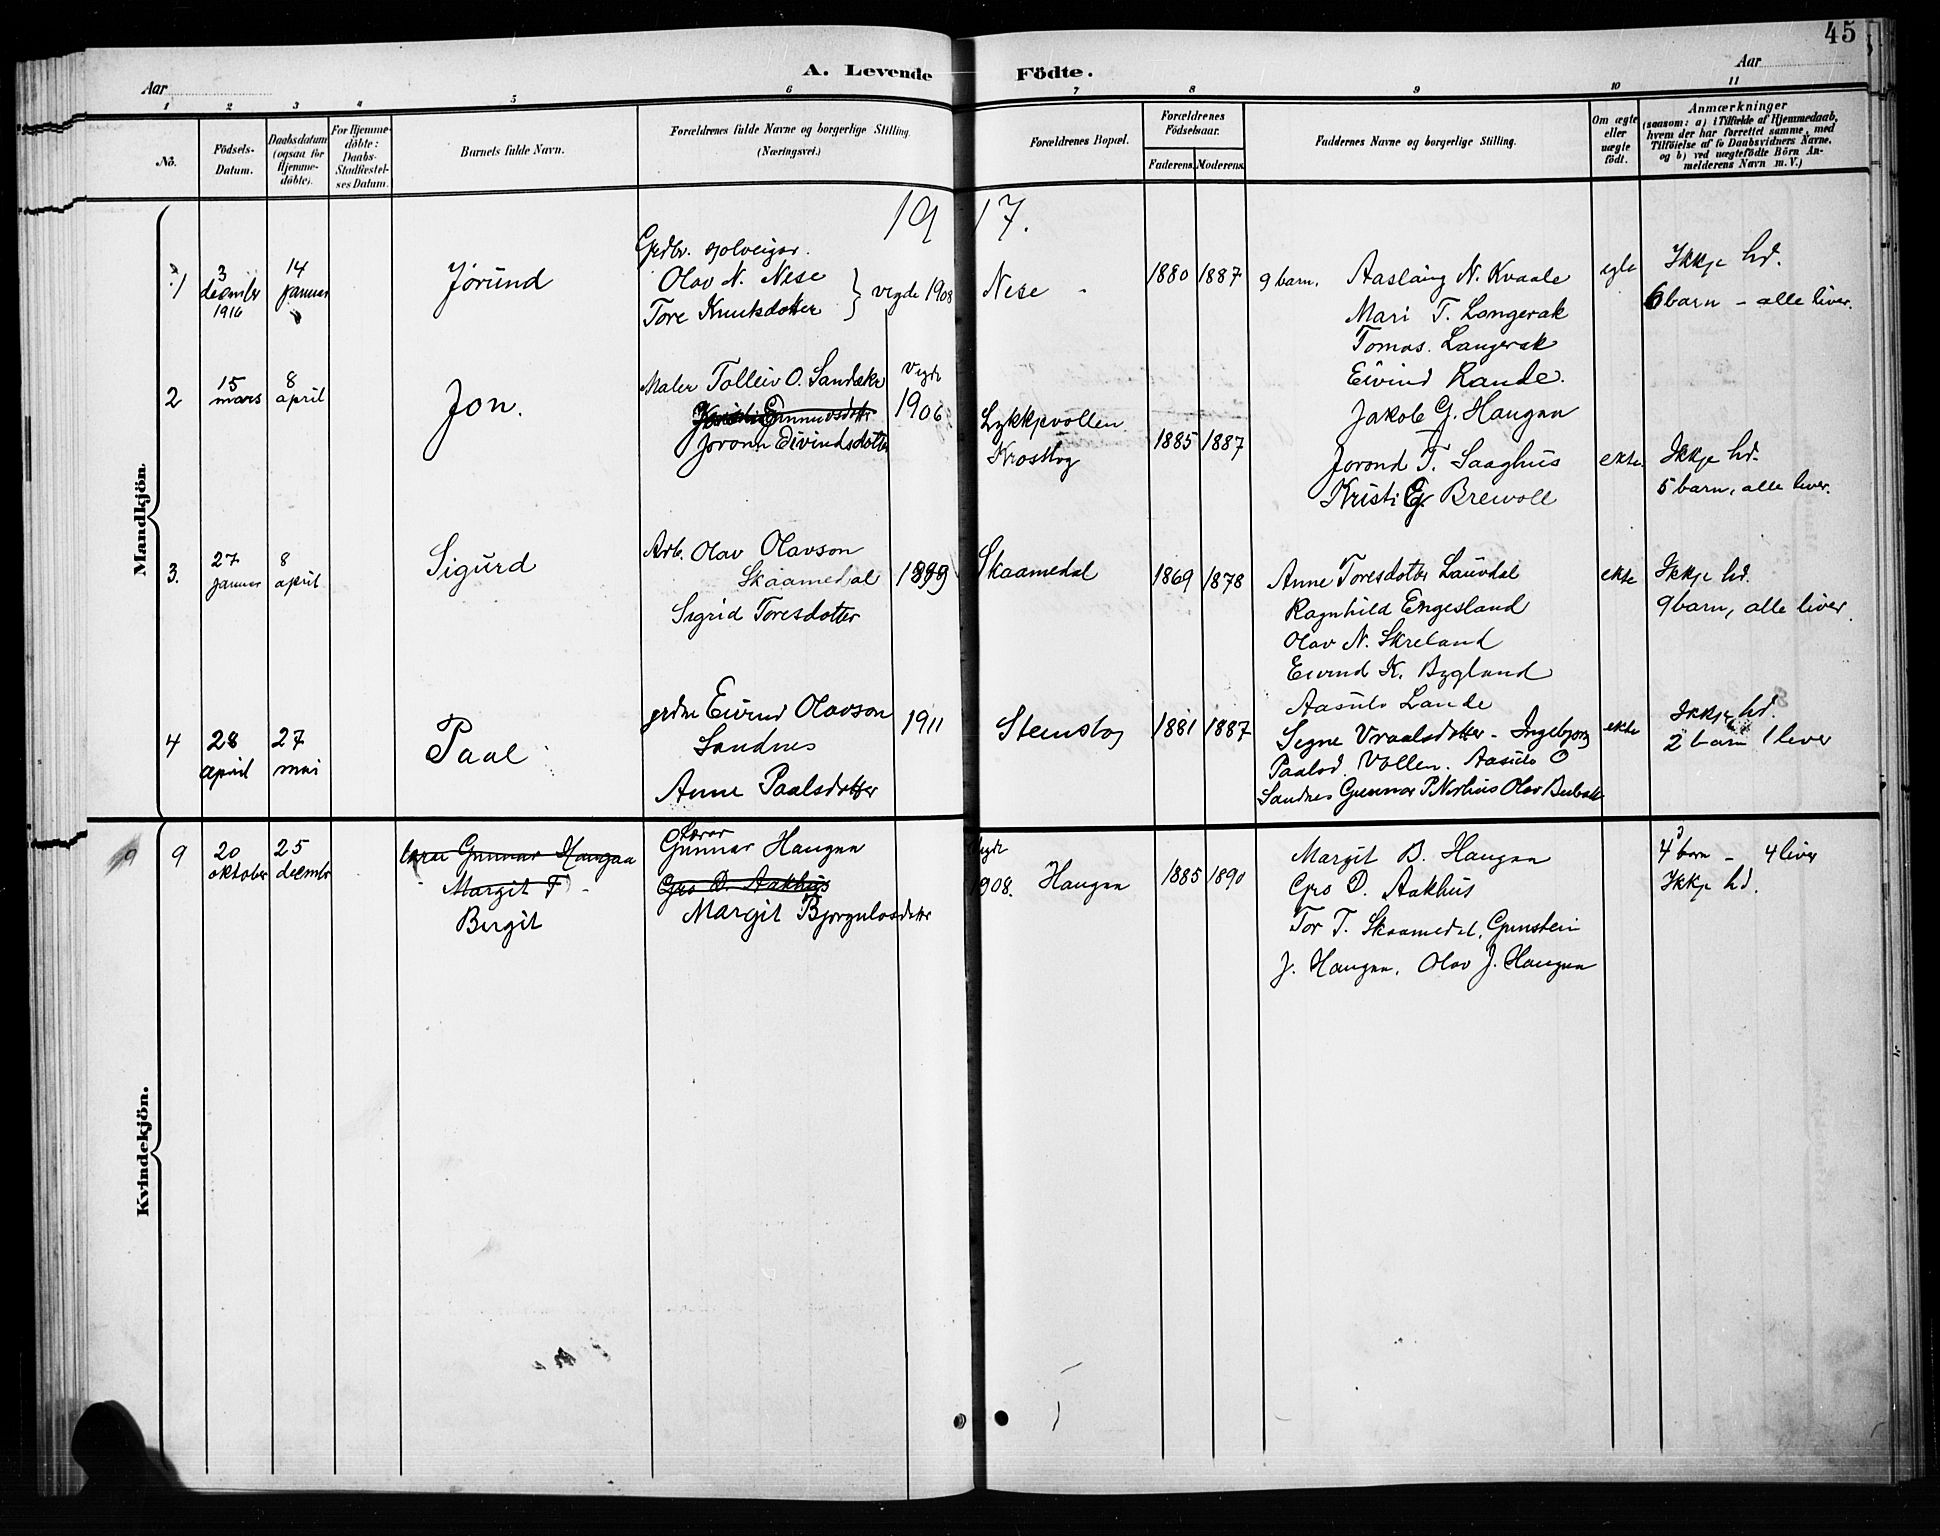 45
A. Levende Födte.
Aar
Aar
1 2 3 4 5 6 7 8 9 10 11
No.
Födsels-Datum.
Daabsdatum (ogsaa for Hjemmedöbte).
For Hjemmedöbte: Daabs-Stadfæstelses Datum.
Barnets fulde Navn.
Forældrenes fulde Navne og borgerlige Stilling. (Næringsvei.)
Forældrenes Bopæl.
Forældrenes Födselsaar.
Faderens. Moderens.
Faddernes Navne og borgerlige Stilling.
Om ægte eller uægte födt.
Anmærkninger
(saasom: a) i Tilfælde af Hjemmedaab, hvem der har forrettet samme, med Tilföielse af to Daabsvidners Navne, og b) ved uægtefödte Börn Anmelderens Navn m. V.)
1917.
Mandkjön
1
3 desember 1916
14 januar
Jorund
Gardbr. sjolveigar.
Olav N. Nese
Tore Knutsdotter
vigde 1908
Nese
1880 1887
9 barn.
Aaslaug N. Kvaale
Mari T. Langerak
Tomas Langerak
Eivind Rande.
Jakob G. Haugan
Ikkje hd.
6 barn - alle liver.
2
15 mars
8 april
Jon.
Maler Tolleiv O. Sandeke
Joronn Eivindsdotter
Vigde 1906
Lykkjevollen
1885 1887
Jorond T. Saaghus
Kristi G. Brevoll
ekte.
Ikkje hd.
5 barn, alle liver.
3.
27 januar
8 april
Sigurd
Arb. Olav Olavson
Skaamedal
Sigrid Toresdotter
1899
Skaamedal
1869 1878
Anne Toresdotter Lauvdal
Ragnhild Engesland
Olav N. Skreland
Eivind K. Bygland
Aasulv Lande
ekte
Ikkje hd.
9 barn, alle liver.
4
28 april
27 mai
Paal
Eivind Olavson
Sandnes
Anne Paalsdotter
1911
1881 1887
Signe Vraalsdotter - Ingebjorg
Paalsd. Vollen. Aasulv O
Sandnes Gunnar P. Nerhus Olav
ekte
Ikkje hd.
2 barn 1 liver
Kvindekjön.
9
20 oktober
25 desembr
lærar Gunnar Haugaa
Margit F
Birgit
lærar
Gunnar Haugan
Gro D. Aakhus
Margit Bjorgulvsdotter
Vigde 1908.
Haugan
1885 1890
Margit B. Haugan
Gro D. Aakhus
Tor T. Skaamedal, Gunstein
J. Haugan, Olav J. Haugan
4 barn - 4 liver
Ikkje hd.